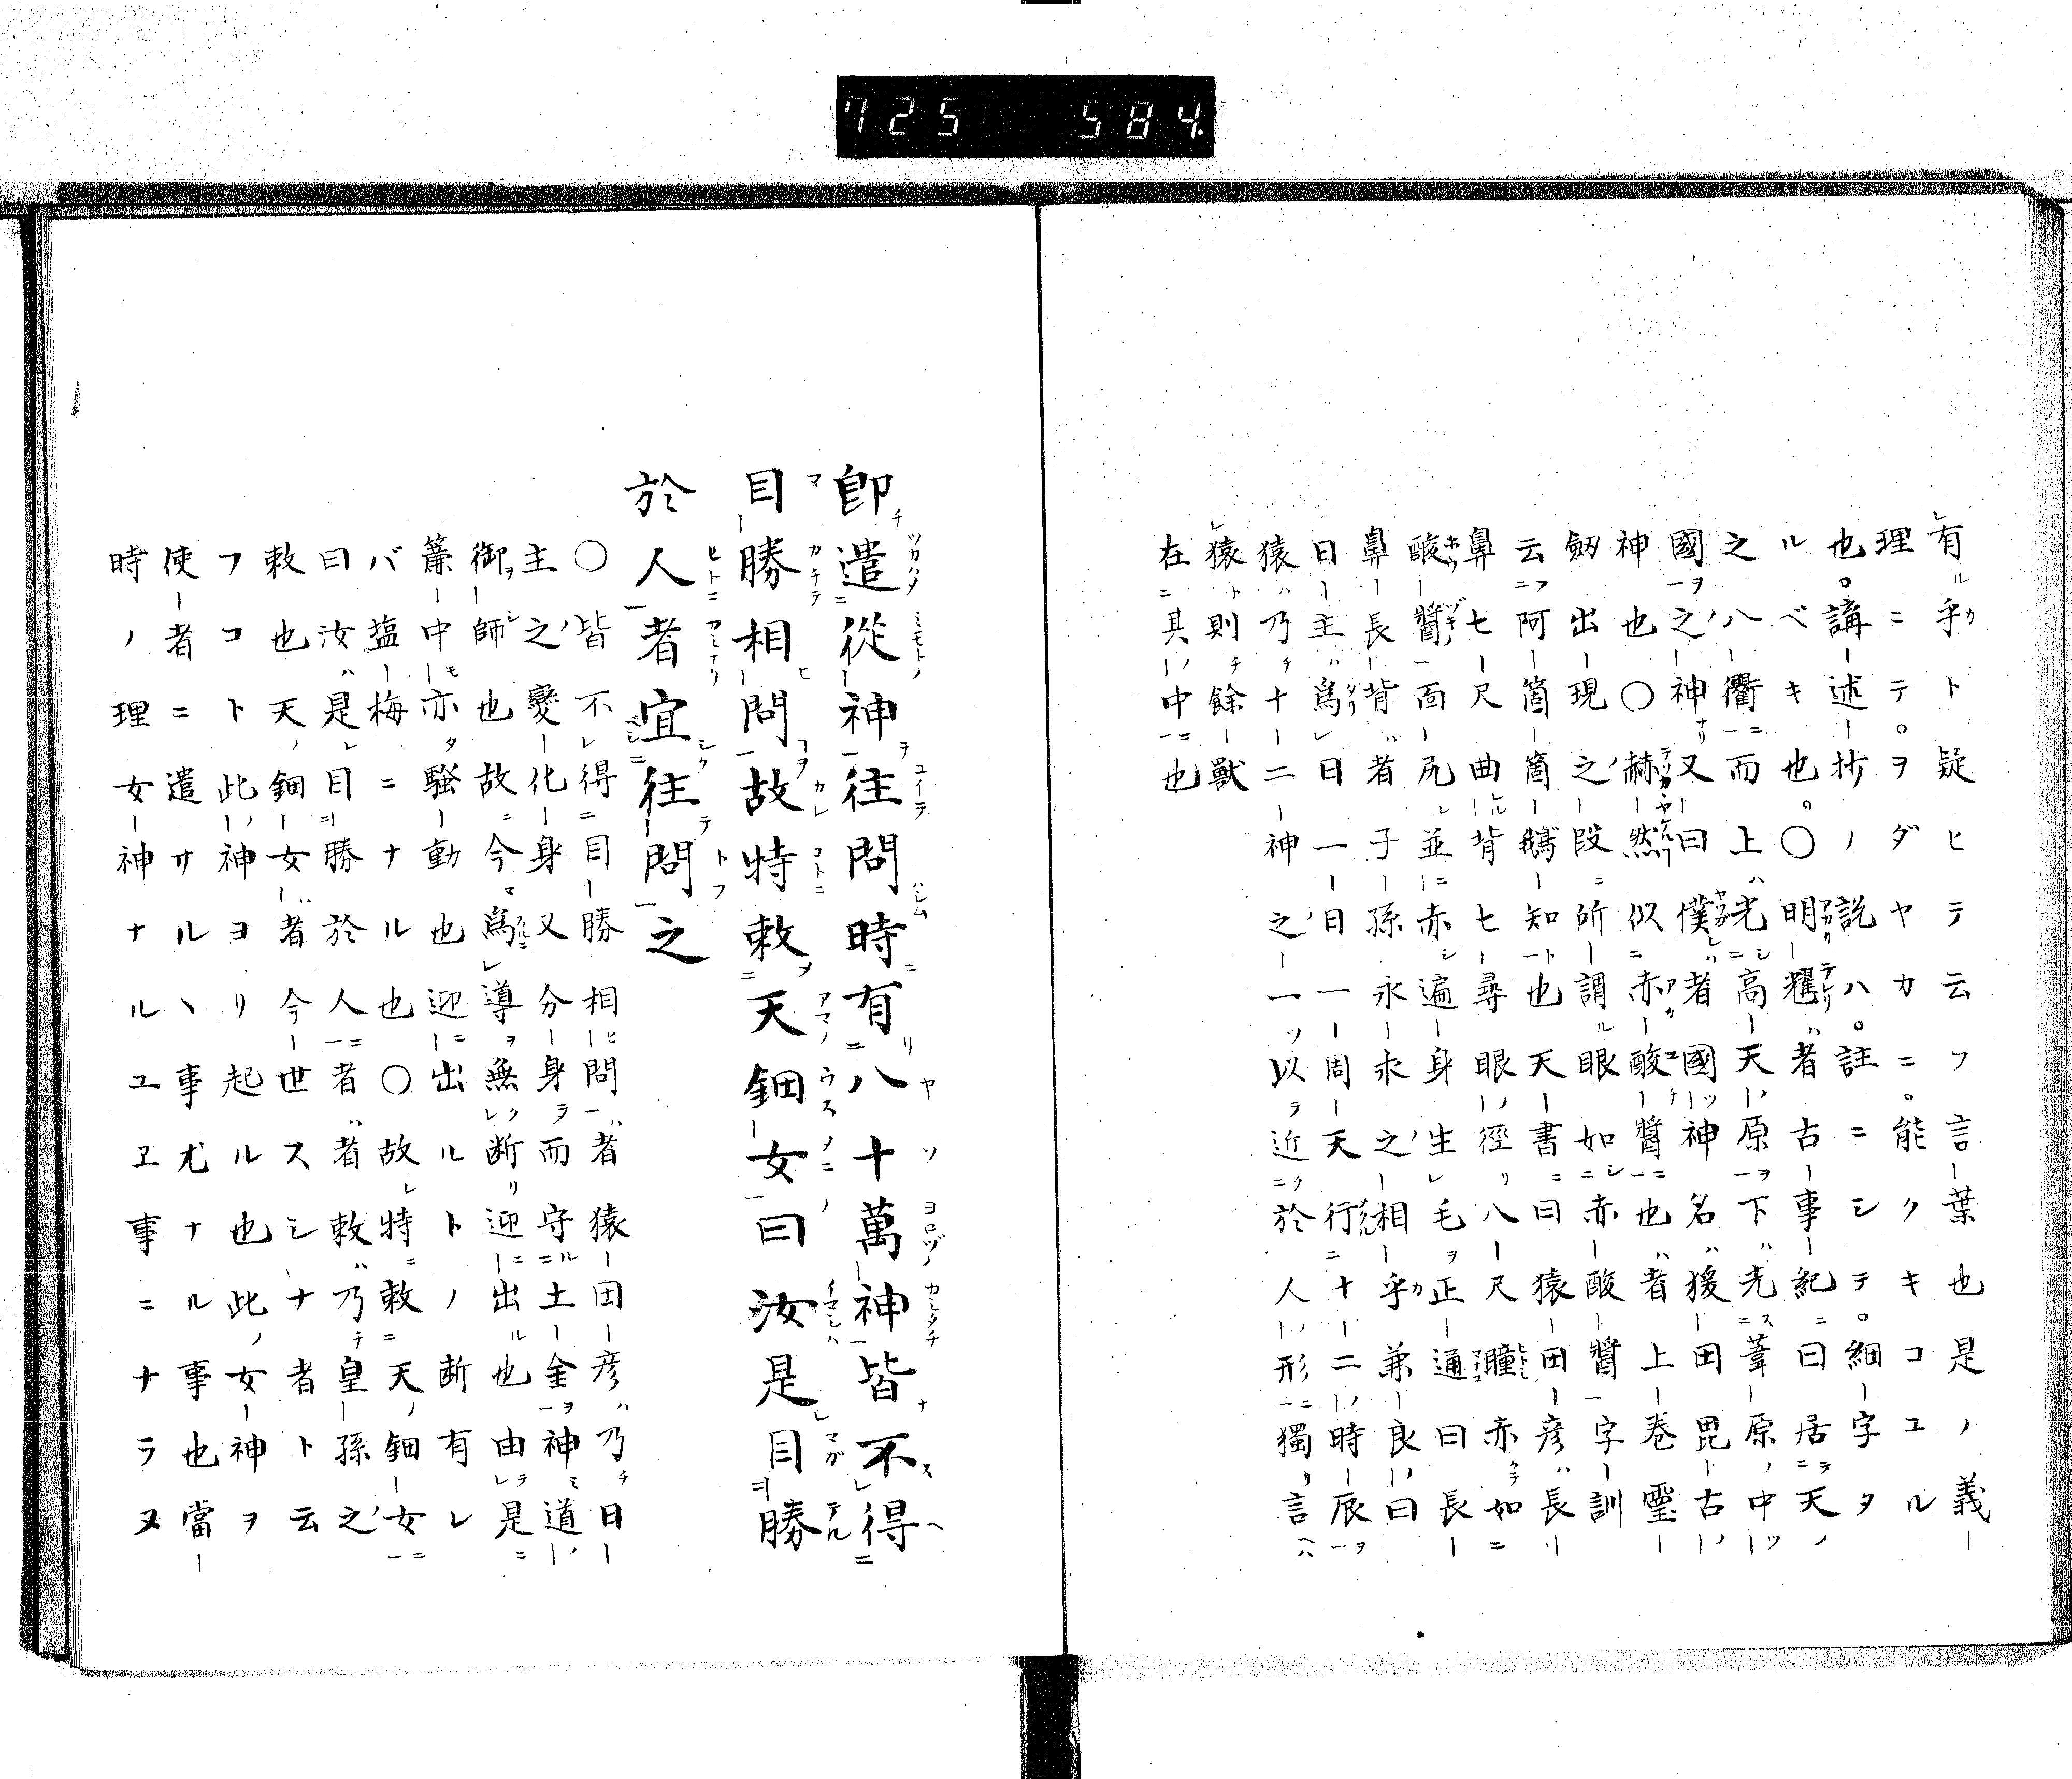 725 584
有ル乎ト疑ヒテ云フ言葉也是ノ義
理ニテヲダヤカニ能クキコユル
也講述抄ノ説ハ註ニシテ細字タ
ルベキ也〇明耀者古事紀ニ曰居天
之八衢而上光高天原下光葦原中
國之神又曰僕者國神名猨田毘古
神也〇赫然似赤酸醬也者上巻霊
劔出現之段所謂眼如赤酸醬字訓
云阿箇箇鵝知也天書曰猿田彦長
鼻七尺曲背七尋眼径八尺瞳赤如
酸醬面尻並赤遍身生毛正通曰長
鼻長背者子孫永永之相乎兼良曰
日主為日一日一周天行十二時辰
猿乃十二神之一ツ以近於人形獨言
猿則餘獸
在其中也
即遣從神往問時有八十萬神皆不得
目勝相問故特敕天鈿女曰汝是目勝
於人者宜往問之
〇皆不得目勝相問者猿田彦乃日
主之變化身又分身而守土金神道
御師也故今為導無断迎出也由是
簾中亦騒動也迎出ルトノ断有レ
バ塩梅ニナル也〇故特敕天鈿女
曰汝是目勝於人者者敕乃皇孫之
敕也天鈿女者今世スシナ者ト云
フコト此神ヨリ起ル也此女神ヲ
使者ニ遣サルヽ事尤ナル事也當
時ノ理女神ナルユヱ事ニナラヌ